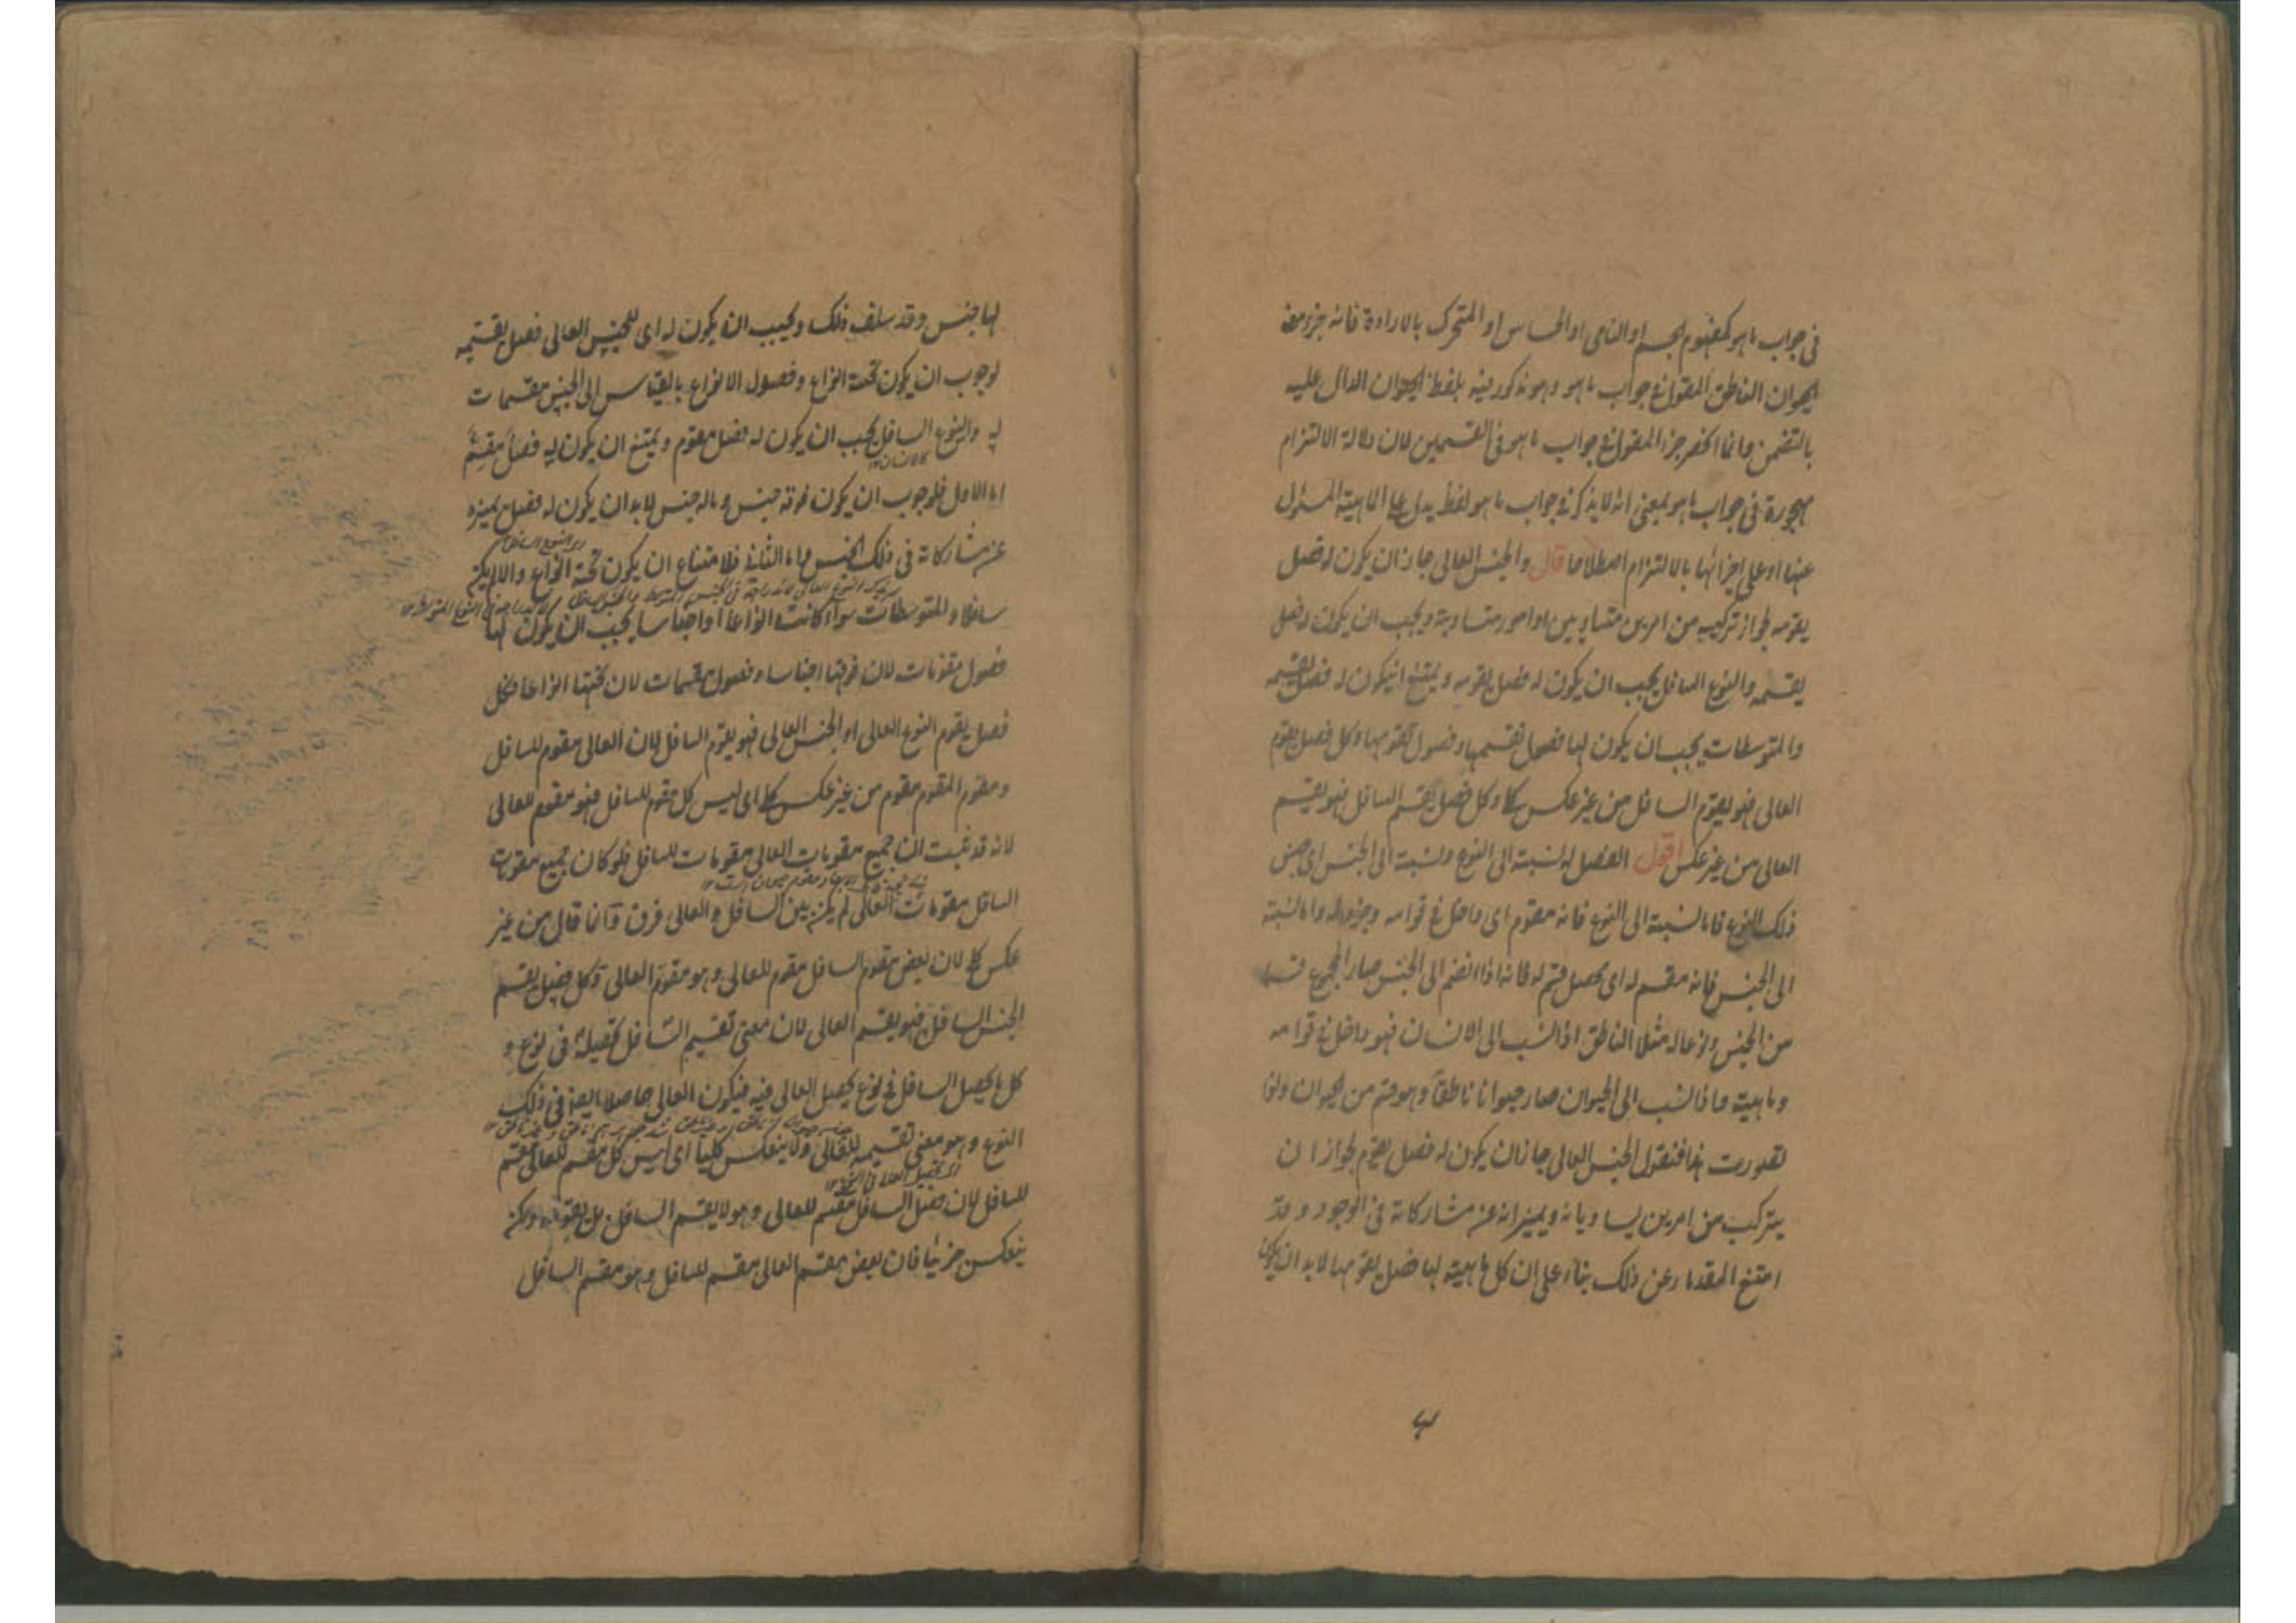 فى جواب ما هو كمفهوم الجسم او النامى او الحساس او المتحرك بالارادة فانه جزء معنى
الحيوان الناطق المقول فى جواب ما هو وهو مذكور فيه بلفظ الحيوان الدال عليه
بالتضمن وانما انحصر جزء المقول فى جواب ما هو فى القسمين لان دلالة الالتزام
مهجورة فى جواب ما هو بمعنى انه لا يذكر فى جواب ما هو لفظ يدل على الماهية المسئول
عنها او على اجزائها بالالتزام اصطلاحا قال والجنس العالى جاز ان يكون له فصل
يقومه لجواز تركيبه من امرين متساويين او امور متساوية ويجب ان يكون له فصل
يقسمه والنوع السافل يجب ان يكون له فصل يقومه ويمتنع ان يكون له فصل يقسمه
والمتوسطات يجب ان يكون لها فصول تقسمها وفصول تقومها وكل فصل يقوم
العالى فهو يقوم السافل من غير عكس كلى وكل فصل يقسم السافل فهو يقسم
العالى من غير عكس اقول الفصل له نسبة الى النوع ونسبة الى الجنس اى جنس
ذلك النوع فاما نسبته الى النوع فانه مقوم اى داخل فى قوامه وجزء له واما نسبته
الى الجنس فانه مقسم له اى محصل قسم له فانه اذا انضم الى الجنس صار المجموع قسما
من الجنس ونوعا له مثلا الناطق اذا نسب الى الانسان فهو داخل فى قوامه
وماهيته واذا نسب الى الحيوان صار حيوانا ناطقا وهو قسم من الحيوان واذا
تصورت هذا فنقول الجنس العالى جاز ان يكون له فصل يقوم لجواز ان
يتركب من امرين يساويانه ويميزانه عن مشاركاته فى الوجود وقد
امتنع القدماء عن ذلك بناء على ان كل ماهية لها فصل يقومها لا بد ان يكون
لها جنس وقد سلف ذلك ويجب ان يكون له اى للجنس العالى فصل يقسمه
لوجوب ان يكون تحته انواع وفصول الانواع بالقياس الى الجنس مقسمات
له والنوع السافل يجب ان يكون له فصل مقوم ويمتنع ان يكون له فصل مقسم
كالانسان ١٢
اما الاول فلوجوب ان يكون فوقه جنس وما له جنس لا بد ان يكون له فصل يميزه
عن مشاركاته فى ذلك الجنس واما الثانى فلامتناع ان يكون تحته انواع والا لم يكن
سافلا والمتوسطات سواء كانت انواعا او اجناسا يجب ان يكون لها
فصول مقومات لان فوقها اجناسا وفصول مقسمات لان تحتها انواعا فكل
فصل يقوم النوع العالى او الجنس العالى فهو يقوم السافل لان العالى مقوم للسافل
ومقوم المقوم مقوم من غير عكس كلى اى ليس كل مقوم للسافل فهو مقوم للعالى
لانه قد ثبت ان جميع مقومات العالى مقومات للسافل فلو كان جميع مقومات
السافل مقومات العالى لم يكن بين السافل والعالى فرق وانما قال من غير
عكس كلى لان بعض مقوم السافل مقوم للعالى وهو مقوم العالى وكل فصل يقسم
الجنس السافل فهو يقسم العالى لان معنى تقسيم السافل تحصيله فى نوع و
كل ما يحصل السافل فى نوع يحصل العالى فيه فيكون العالى حاصلا ايضا فى ذلك
النوع وهو معنى تقسيمه للعالى ولا ينعكس كليا اى ليس كل مقسم للعالى مقسم
للسافل لان فصل السافل مقسم للعالى وهو لا يقسم السافل بل يقومه ولكن
ينعكس جزئيا فان بعض مقسم العالى مقسم للسافل وهو مقسم السافل